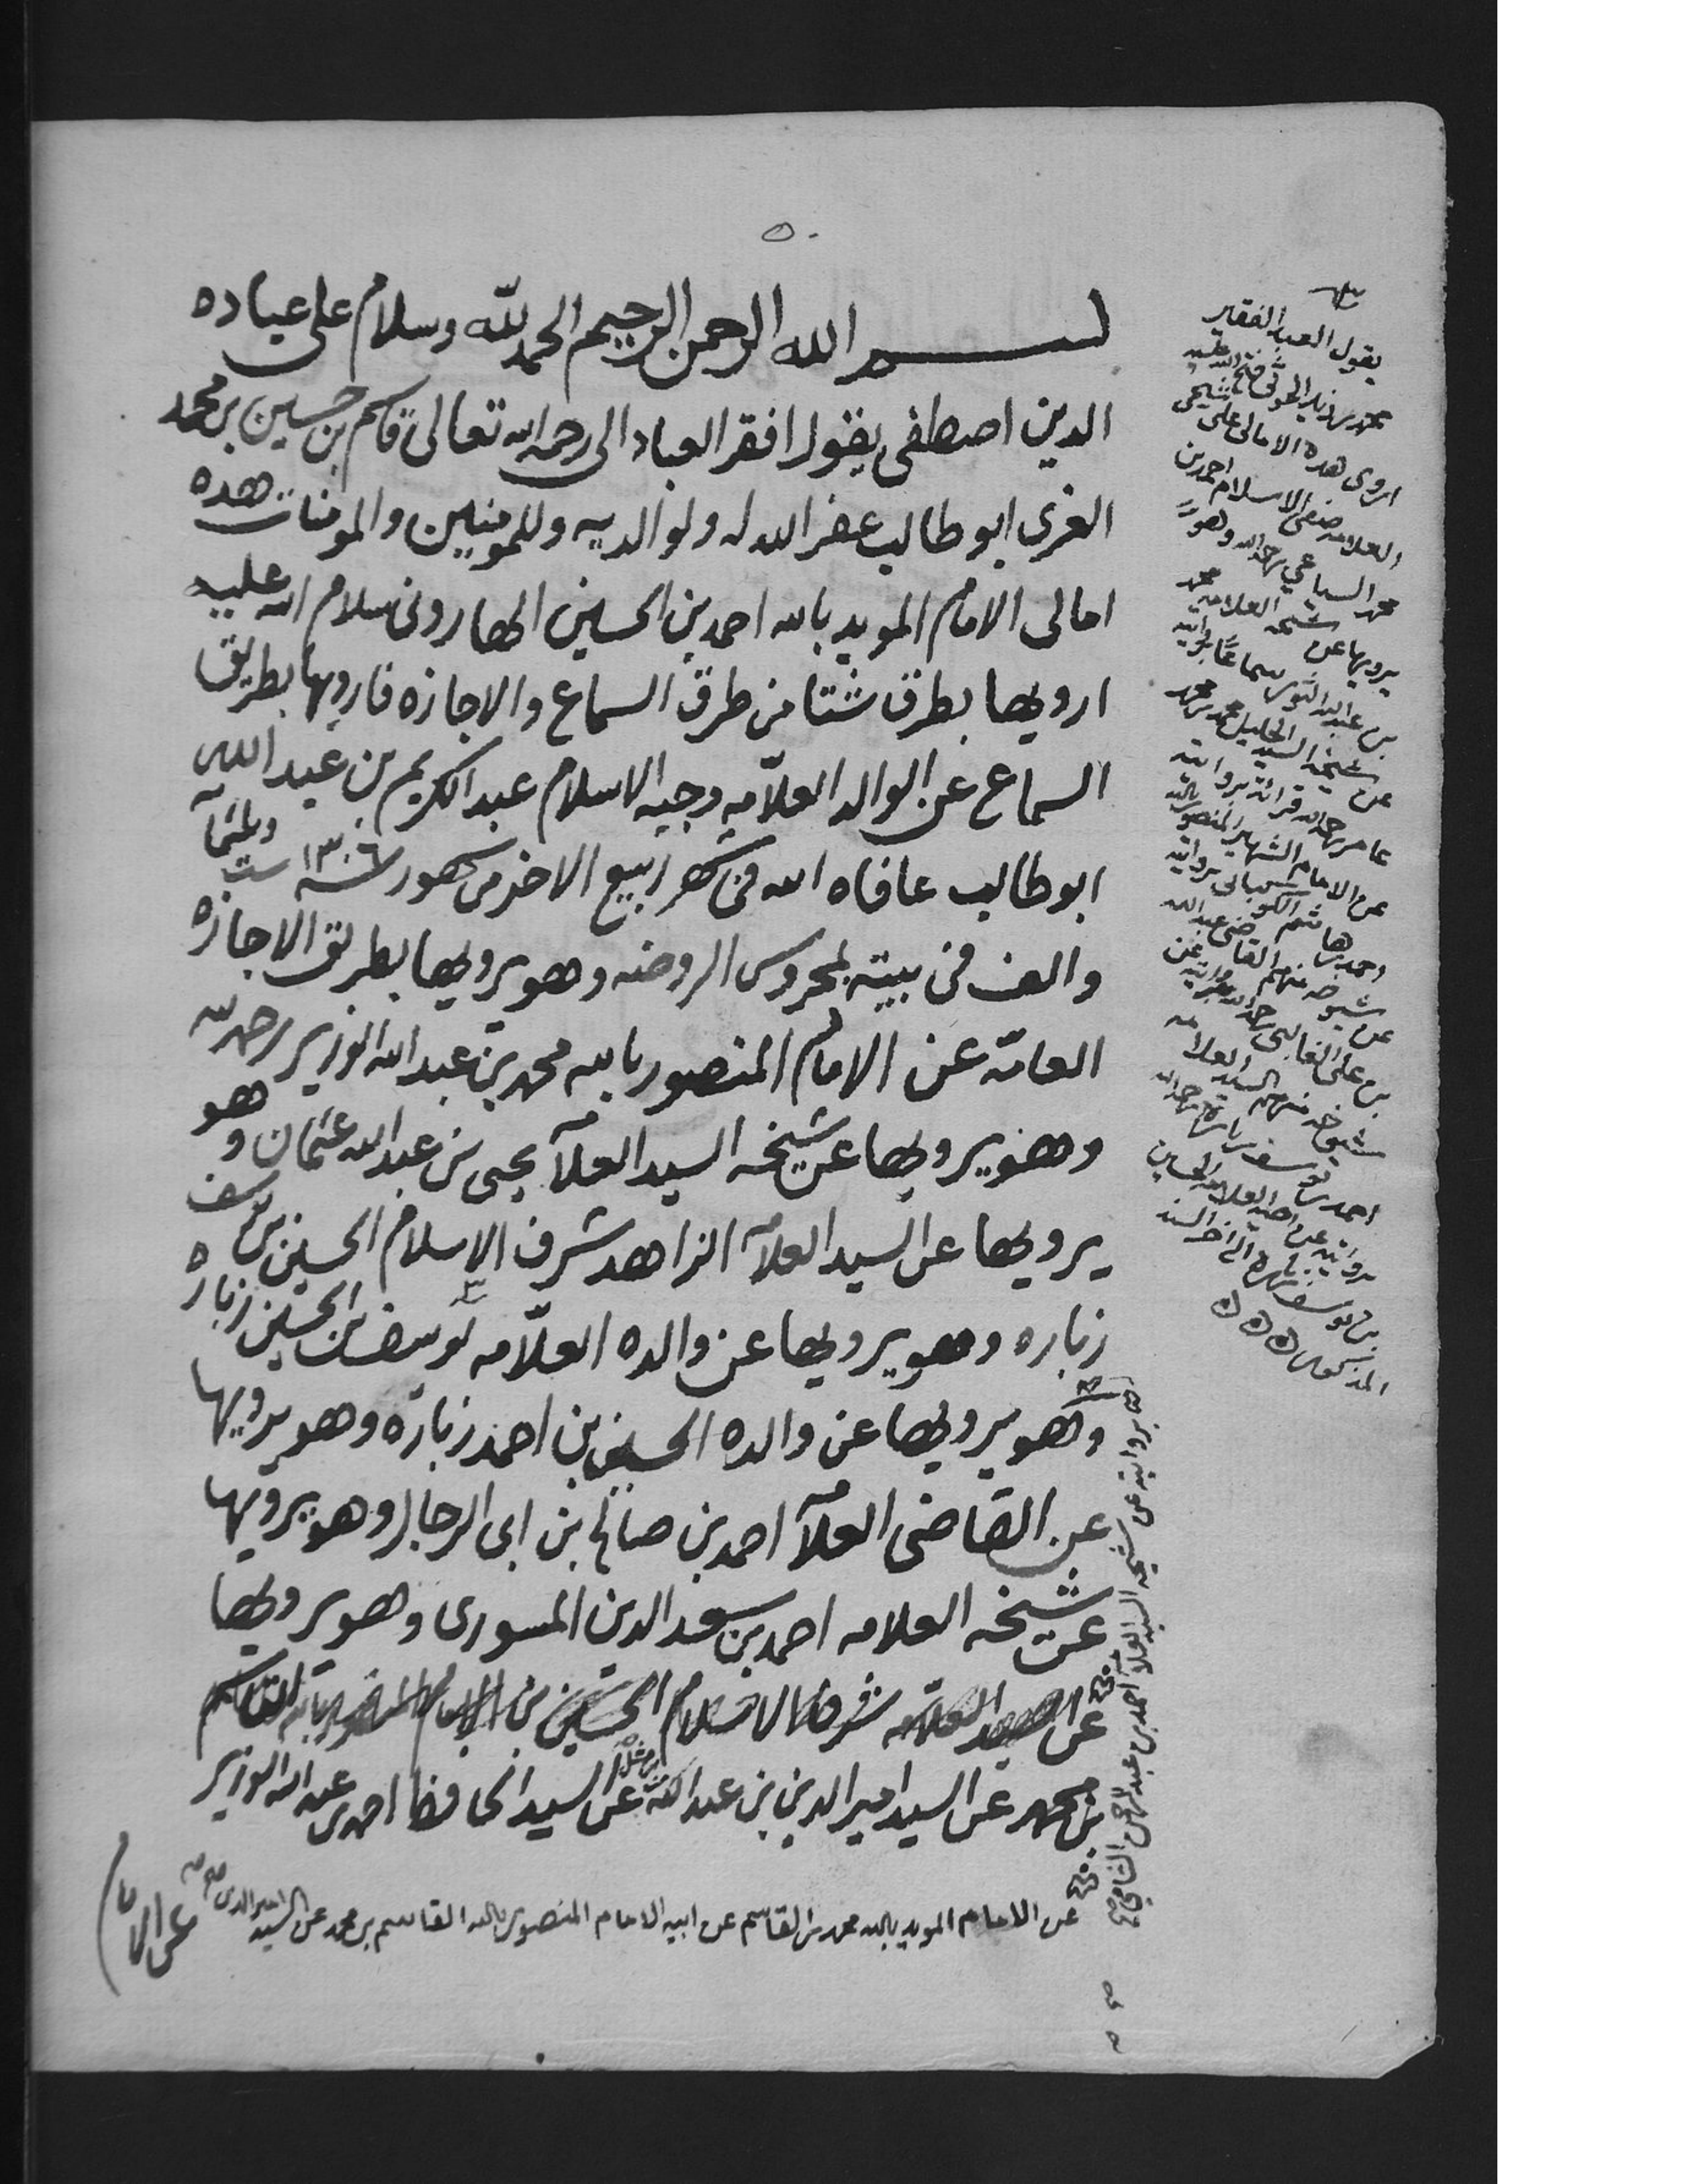 ٥٠
بسم الله الرحمن الرحيم الحمد لله وسلام على عباده
الدين اصطفى يقول افقر العباد الى رحمة الله تعالى قاسم بن حسين بن محمد
العزي ابو طالب غفر الله له ولوالديه وللمومنين والمومنات هده
امالي الامام المويد بالله احمد بن الحسين الهاروني سلام الله عليه
ارويها بطرق شتا من طرق السماع والاجازه فارويها بطريق
السماع عن الوالد العلّامه وجيه الاسلام عبد الكريم بن عبد الله
ابو طالب عافاه الله في شهر ربيع الاخر من شهور سنة ١٣٠٦ ست وثلثمآ
والف في بيته بمحروس الروضه وهو يرويها بطريق الاجازه
العامّه عن الامام المنصور بالله محمد بن عبد الله الوزير رحمه الله
وهو يرويها عن شيخه السيد العلآ يحيى بن عبد الله عثمان وهو
يرويها عن السيد العلآ الزاهد شرف الاسلام الحسين بن يوسف
زباره وهو يرويها عن والده العلّامه يوسف بن الحسين زباره
وهو يرويها عن والده الحسين بن احمد زباره وهو يرويها
عن القاضي العلآ احمد بن صالح بن ابي الرجال وهو يرويها
عن شيخه العلامه احمد بن سعد الدين المسوري وهو يرويها
عن السيد العلامه شرف الاسلام الحسين بن الامام المنصور بالله القاسم
بن محمد عن السيد امير الدين بن عبد الله عن السيد الحافظ احمد بن عبد الله الوزير
عن الامام المويد بالله محمد بن القاسم عن ابيه الامام المنصور بالله القاسم بن محمد عن السيد امير الدين
عن الامام
يقول العبد الفقير
محمد بن زيد الحوثي فتح الله عليه
اروي هده الامالي على شيخي
العلامه صفي الاسلام احمد بن
محمد السياغي رحمه الله وهو
يرويها عن شيخه العلامه محمد
بن عبد الله سماعًا بروايته
عن شيخه السيد الجليل محمد بن محمد
عامر رحمه الله قرائة بروايته
عن الامام الشهير المنصور بالله
احمد بن هاشم بروايته
عن شيوخه منهم القاضي عبد الله
بن علي الغالبي رحمه الله بروايته عن
شيوخه منهم السيد العلامه
احمد بن يوسف زباره رحمه الله
بروايته عن اخيه العلامه الحسين
بن يوسف زباره الى اخر السند
المذكور
بروايته عن شيخه السيد العلآ احمد بن عبد الرحمن الشامي